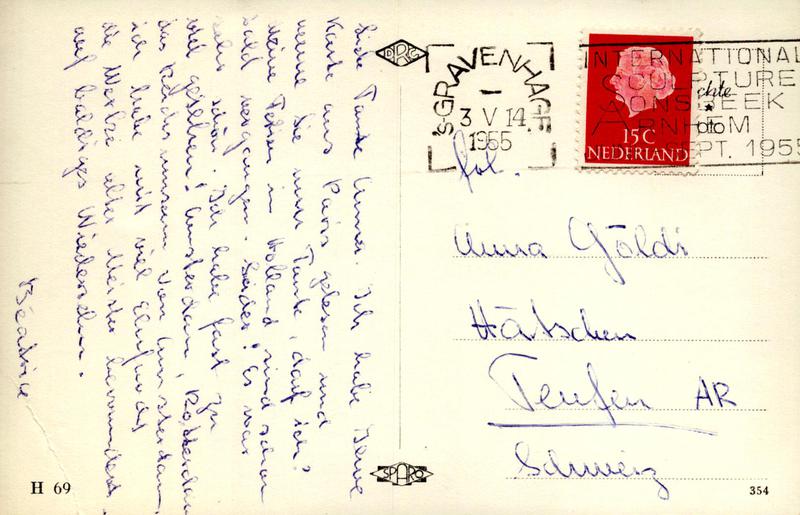 Liebe Tante Anna. Ich habe Ihre
Karte aus Paris gelesen und
nenne Sie nur Tante, darf ich?
Meine Ferien in Holland sind schon
bald vergangen. Leider! Es war
sehr schön. Ich habe fast zu
viel gesehen! Amsterdam, Rotterdam
das Reichsmuseum von Amsterdam,
ich habe mit viel Ehrfurcht
die Werke alter Meister bewundert.
auf baldiges Wiedersehn.
Béatrice
H 69
DRC
SPARO
'S-GRAVENHAGE
3 V 14
1955
INTERNATIONAL
SCULPTURE
SONSBEEK
ARNHEM
SEPT. 1955
15C
NEDERLAND
chte
oto
Frl.
Anna Göldi
Hätschen
Teufen AR
Schweiz
354